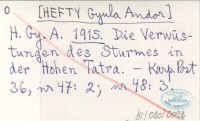 O
[HEFTY Gyula Andor]
H. Gy. A. 1915. Die Verwüs-
tungen des Sturmes in
der Hohen Tatra. – Karp. Post
36, nr 47: 2; nr 48: 3.